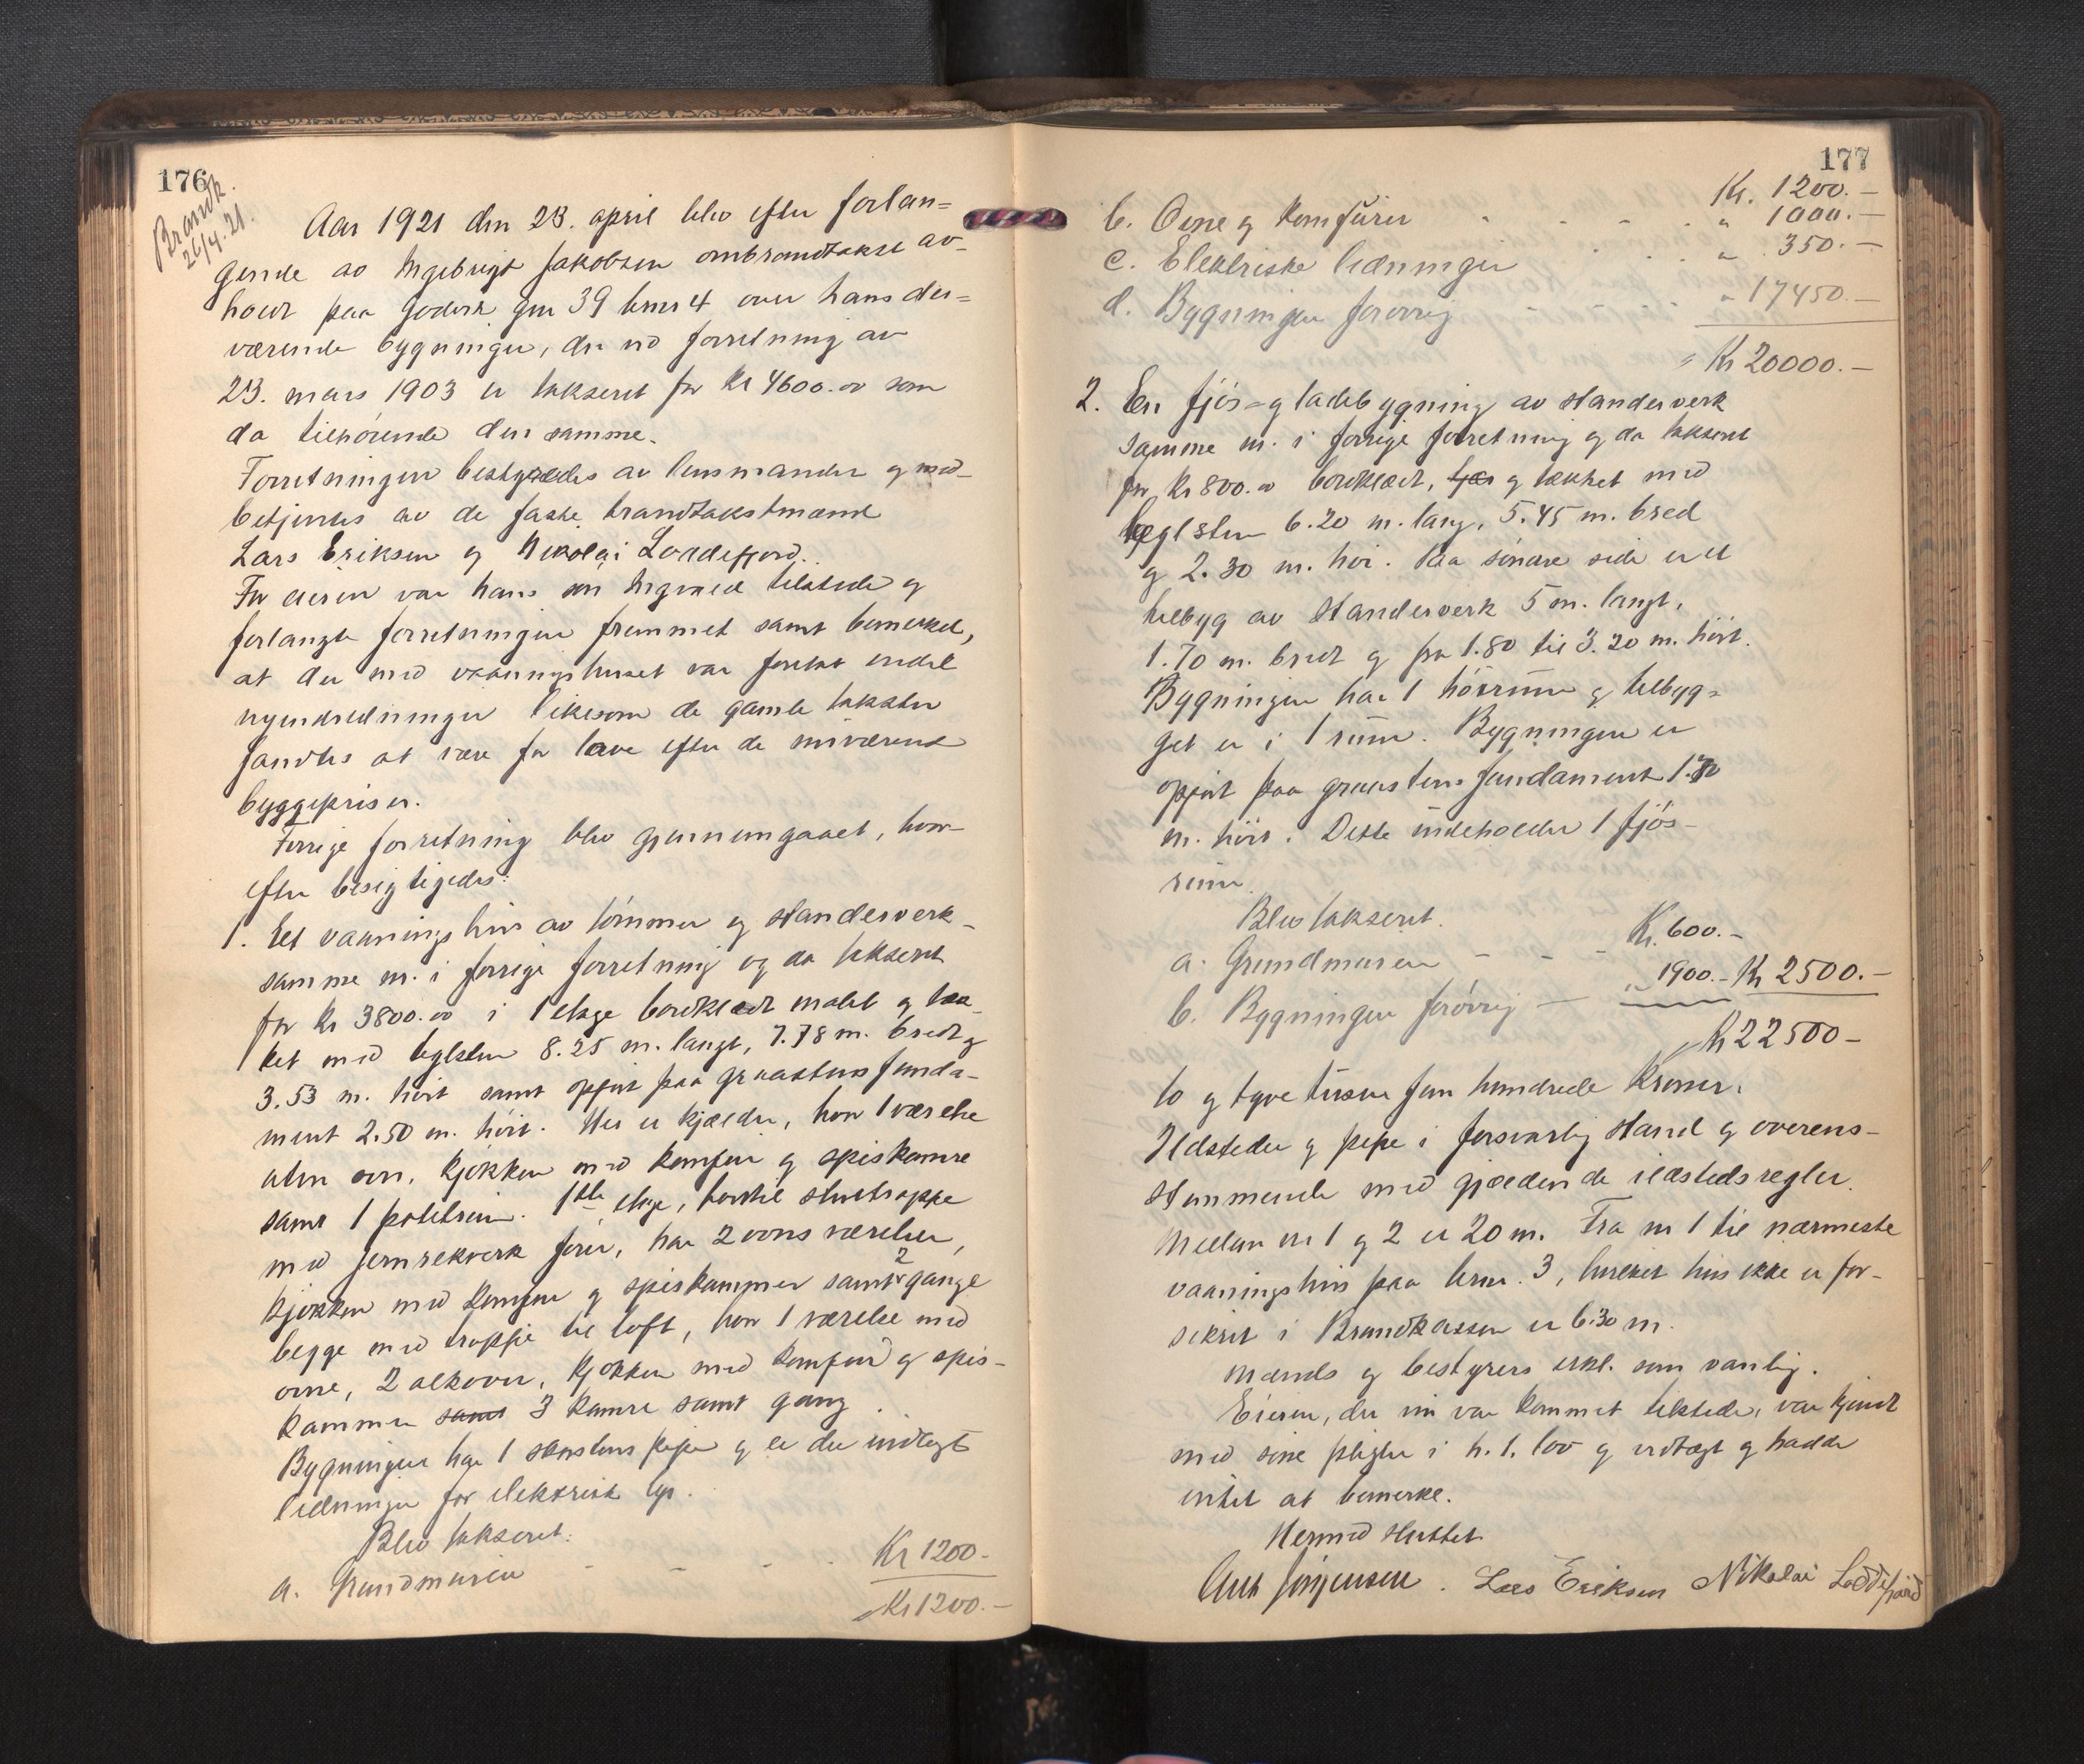 176
Brandk.
26/4.21.
Aar 1921 den 23. april blev efter forlan=
gende av Ingebrigt Jakobsen ombrandtakst av-
holdt paa Godvik gnr 39 brnr 4 over hans der=
værende bygninger, der ved forretning av
23. mars 1903 er takseret for Kr 4600.00 som
da tilhørende den samme.
Forretningen bestyredes av lensmanden og med-
betjentes av de faste brandtakstmænd
Lars Eriksen og Nikolai Loddefjord.
For eieren var hans søn Ingvald tilstede og
forlangte forretningen fremmet samt bemerket,
at der med vaaningshuset var foretat endel
nyindredninger likesom de gamle takster
fandtes at være for lave efter de nuværende
byggepriser.
Forrige forretning blev gjennemgaaet, hvor-
efter besigtigedes:
1. Et vaaningshus av tømmer og standerverk-
samme nr. i forrige forretning og da takseret
for Kr 3800.00 i 1 etage bordklædt malet og tæk-
ket med teglsten 8.25 m. langt, 7.78 m. bredt og
3.53 m. høit samt opført paa graastens funda-
ment 2.50 m. høit. Her er kjælder, hvor 1 værelse
uten ovn, kjøkken med komfur og spiskamre
samt 1 potetrum. 1ste etage, hvortil stentrappe
med jernrekverk fører, har 2 ovns værelser,
kjøkken med komfur og spiskammer samt 2 gange
begge med trappe til loft, hvor 1 værelse med
ovne, 2 alkover, kjøkken med komfur og spis-
kammer samt 3 kamre samt gang.
Bygningen har 1 skorstens pipe og er der indlagt
ledninger for elektrisk lys.
Blev takseret:
a. Grundmuren - - - - Kr 1200.-
Kr 1200.-
177
Kr. 1200.-
b. Ovne og komfürer - - - - " 1000.-
c. Elektriske ledninger - - - " 350.-
d. Bygningen forøvrig - - - - " 17450.-
Kr 20000.-
2. En fjøs- og ladebygning av standerverk
samme nr. i forrige forretning og da takseret
for Kr 800.00 bordklædt, og tækket med
teglsten 6.20 m. lang, 5.45 m. bred
og 2.30 m. høi. Paa søndre side er et
tilbyg av standerverk 5 m. langt,
1.70 m. bredt og fra 1.80 til 3.20 m. høit.
Bygningen har 1 høirum og tilbyg=
get er i 1 rum. Bygningen er
opført paa graastens fundament 1.70
m. høit. Dette indeholder 1 fjøs-
rum.
Blev takseret.
a. Grundmuren - - - Kr. 600.-
b. Bygningen forøvrig - " 1900.- Kr 2500.-
Kr 22500-
to og tyve tusen fem hundrede Kroner.
Ildsteder og pipe i forsvarlig stand og overens-
stemmende med gjældende ildstedsregler.
Mellem nr 1 og 2 er 20 m. Fra nr 1 til nærmeste
vaaningshus paa brnr. 3, hvilket hus ikke er for-
sikret i Brandkassen er 6.30 m.
Mænds og bestyrers erkl. som vanlig.
Eieren, der nu var kommet tilstede, var kjendt
med sine pligter i h. t. lov og vedtægt og hadde
intet at bemerke.
Hermed sluttet
Jørgensen. Lars Eriksen Nikolai Loddefjord